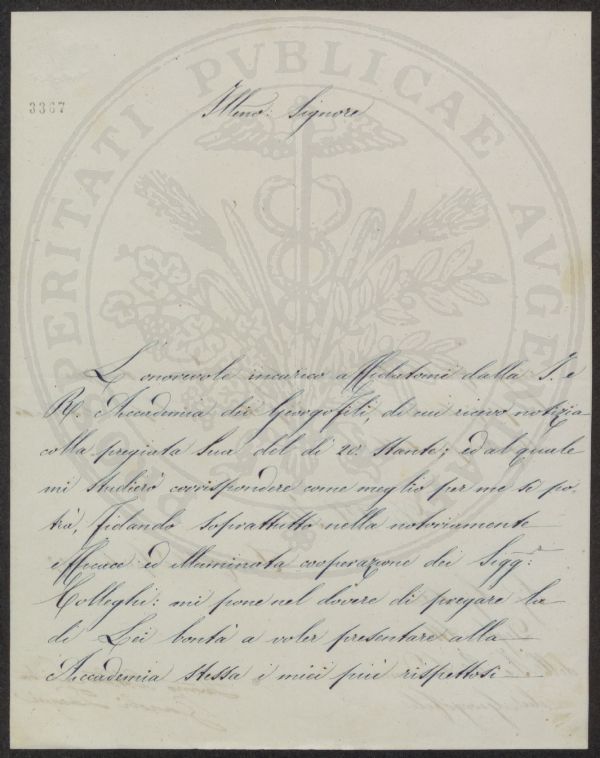 3367
Illmo: Signore
L'onorevole incarico affidatomi dalla I. e
R. Accademia dei Georgofili, di cui ricevo notizia
colla pregiata Sua del dì 20 stante; ed al quale
mi studierò corrispondere come meglio per me si po-
trà, fidando soprattutto nella notoriamente
efficace ed illuminata cooperazione dei Sigg:ri
Colleghi: mi pone nel dovere di pregare la
di Lei bontà a voler presentare alla
Accademia stessa i miei più rispettosi
PROSPERITATI PVBLICAE AVGENDAE